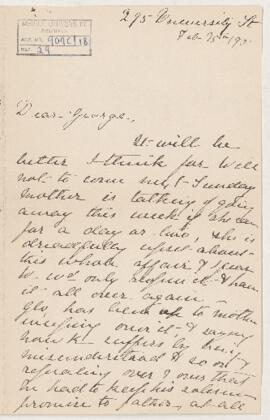 McGILL UNIVERSITY
ARCHIVES
ACC. NO. 909C/18
REF. 29
295 University St
Feb 25th 19
Dear George,
It will be
better I think for Well
not to come next Sunday
mother is talking of going
away this week if she can
for a day or two, she is
dreadfully upset about
this whole affair & fears
to only reopen it & have
it all over again —
Glo, has been up to mother
weeping over it & saying
how suffers by being
misunderstood & so on &
repeating over & over that
he had to keep his solemn
promise to father, at all